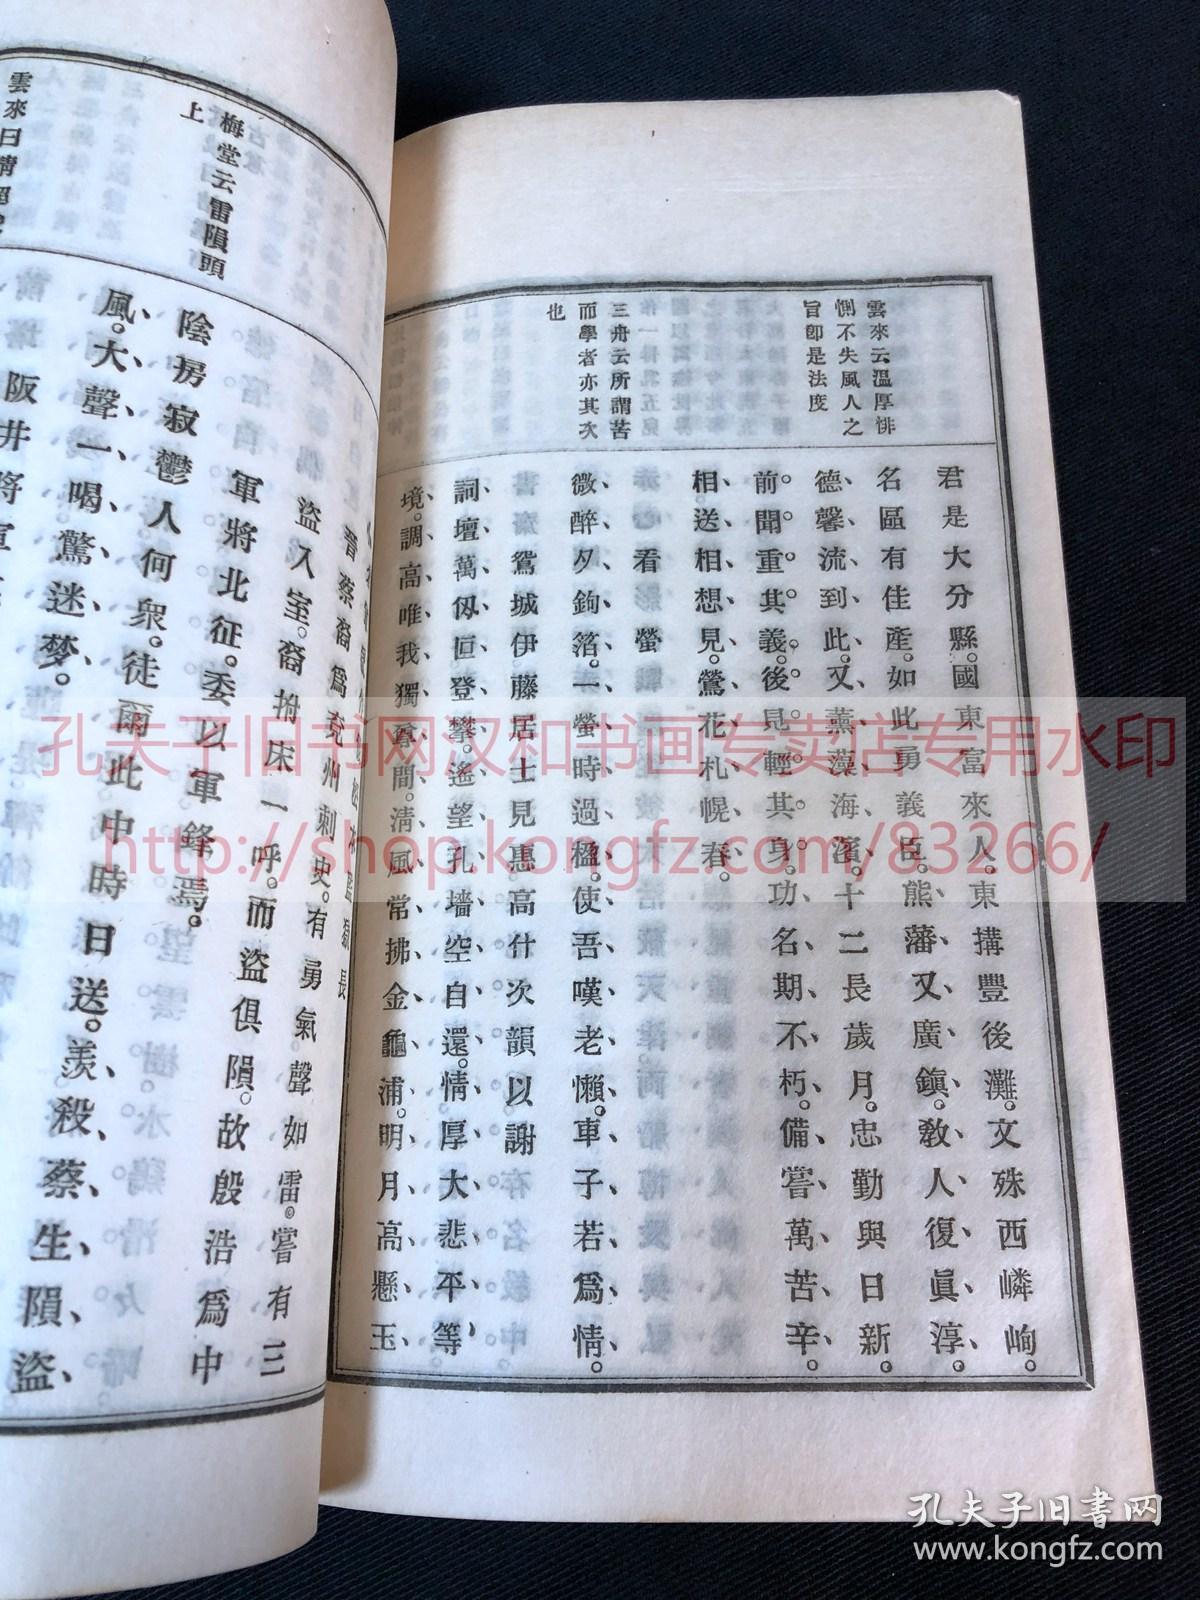 雲來云溫厚悱
惻不失風人之
旨卽是法度
三舟云所謂苦
而學者亦其次
也
君是大分縣。國東富來人。東搆豐後灘。文殊西嶙峋。
名區有佳產。如此勇義臣。熊藩又廣鎮。敎人復眞淳。
德馨流到此。又蕪藻海濱。十二長歲月。忠勤與日新。
前。聞重其義。後見輕其身。功名期不朽。備嘗萬苦辛。
相送相想見。鶯花札幌春。
看螢
微醉夕鉤箔。一螢時過楹。使吾嘆老懶。車子若爲情。
鴛城伊藤居士見惠高什次韻以謝
詞壇萬仭恒登攀。遙望孔墻空自還。情厚大悲平等
境。調高唯我獨尊間。清風常拂金龜浦。明月高懸玉
梅堂云雷隕頭
上
晉蔡裔爲兗州刺史。有勇氣聲如雷。嘗有三
盜入室。裔拊床一呼。而盜俱隕。故殷浩爲中
軍將北征。委以軍鋒焉。
陰房寂鬱人何衆。徒爾此中時日送。羨殺蔡生隕盜
風。大聲一喝驚迷夢。
孔夫子旧书网汉和书画专卖店专用水印
http://shop.kongfz.com/83266/
孔夫子旧书网
www.kongfz.com